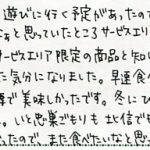 遊びに行く予定があったので
なぁと思っていたところサービスエリア
サービスエリア限定の商品と知り
た気分になりました。早速食べ
厚で美味しかったです。冬にひ
。いと思巣ごもりも
ったので、また食べたいなと思っ